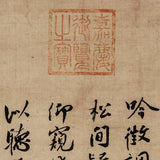 嘉慶
御覽
之寶
吟徵調
松間疑
仰窺
以聽